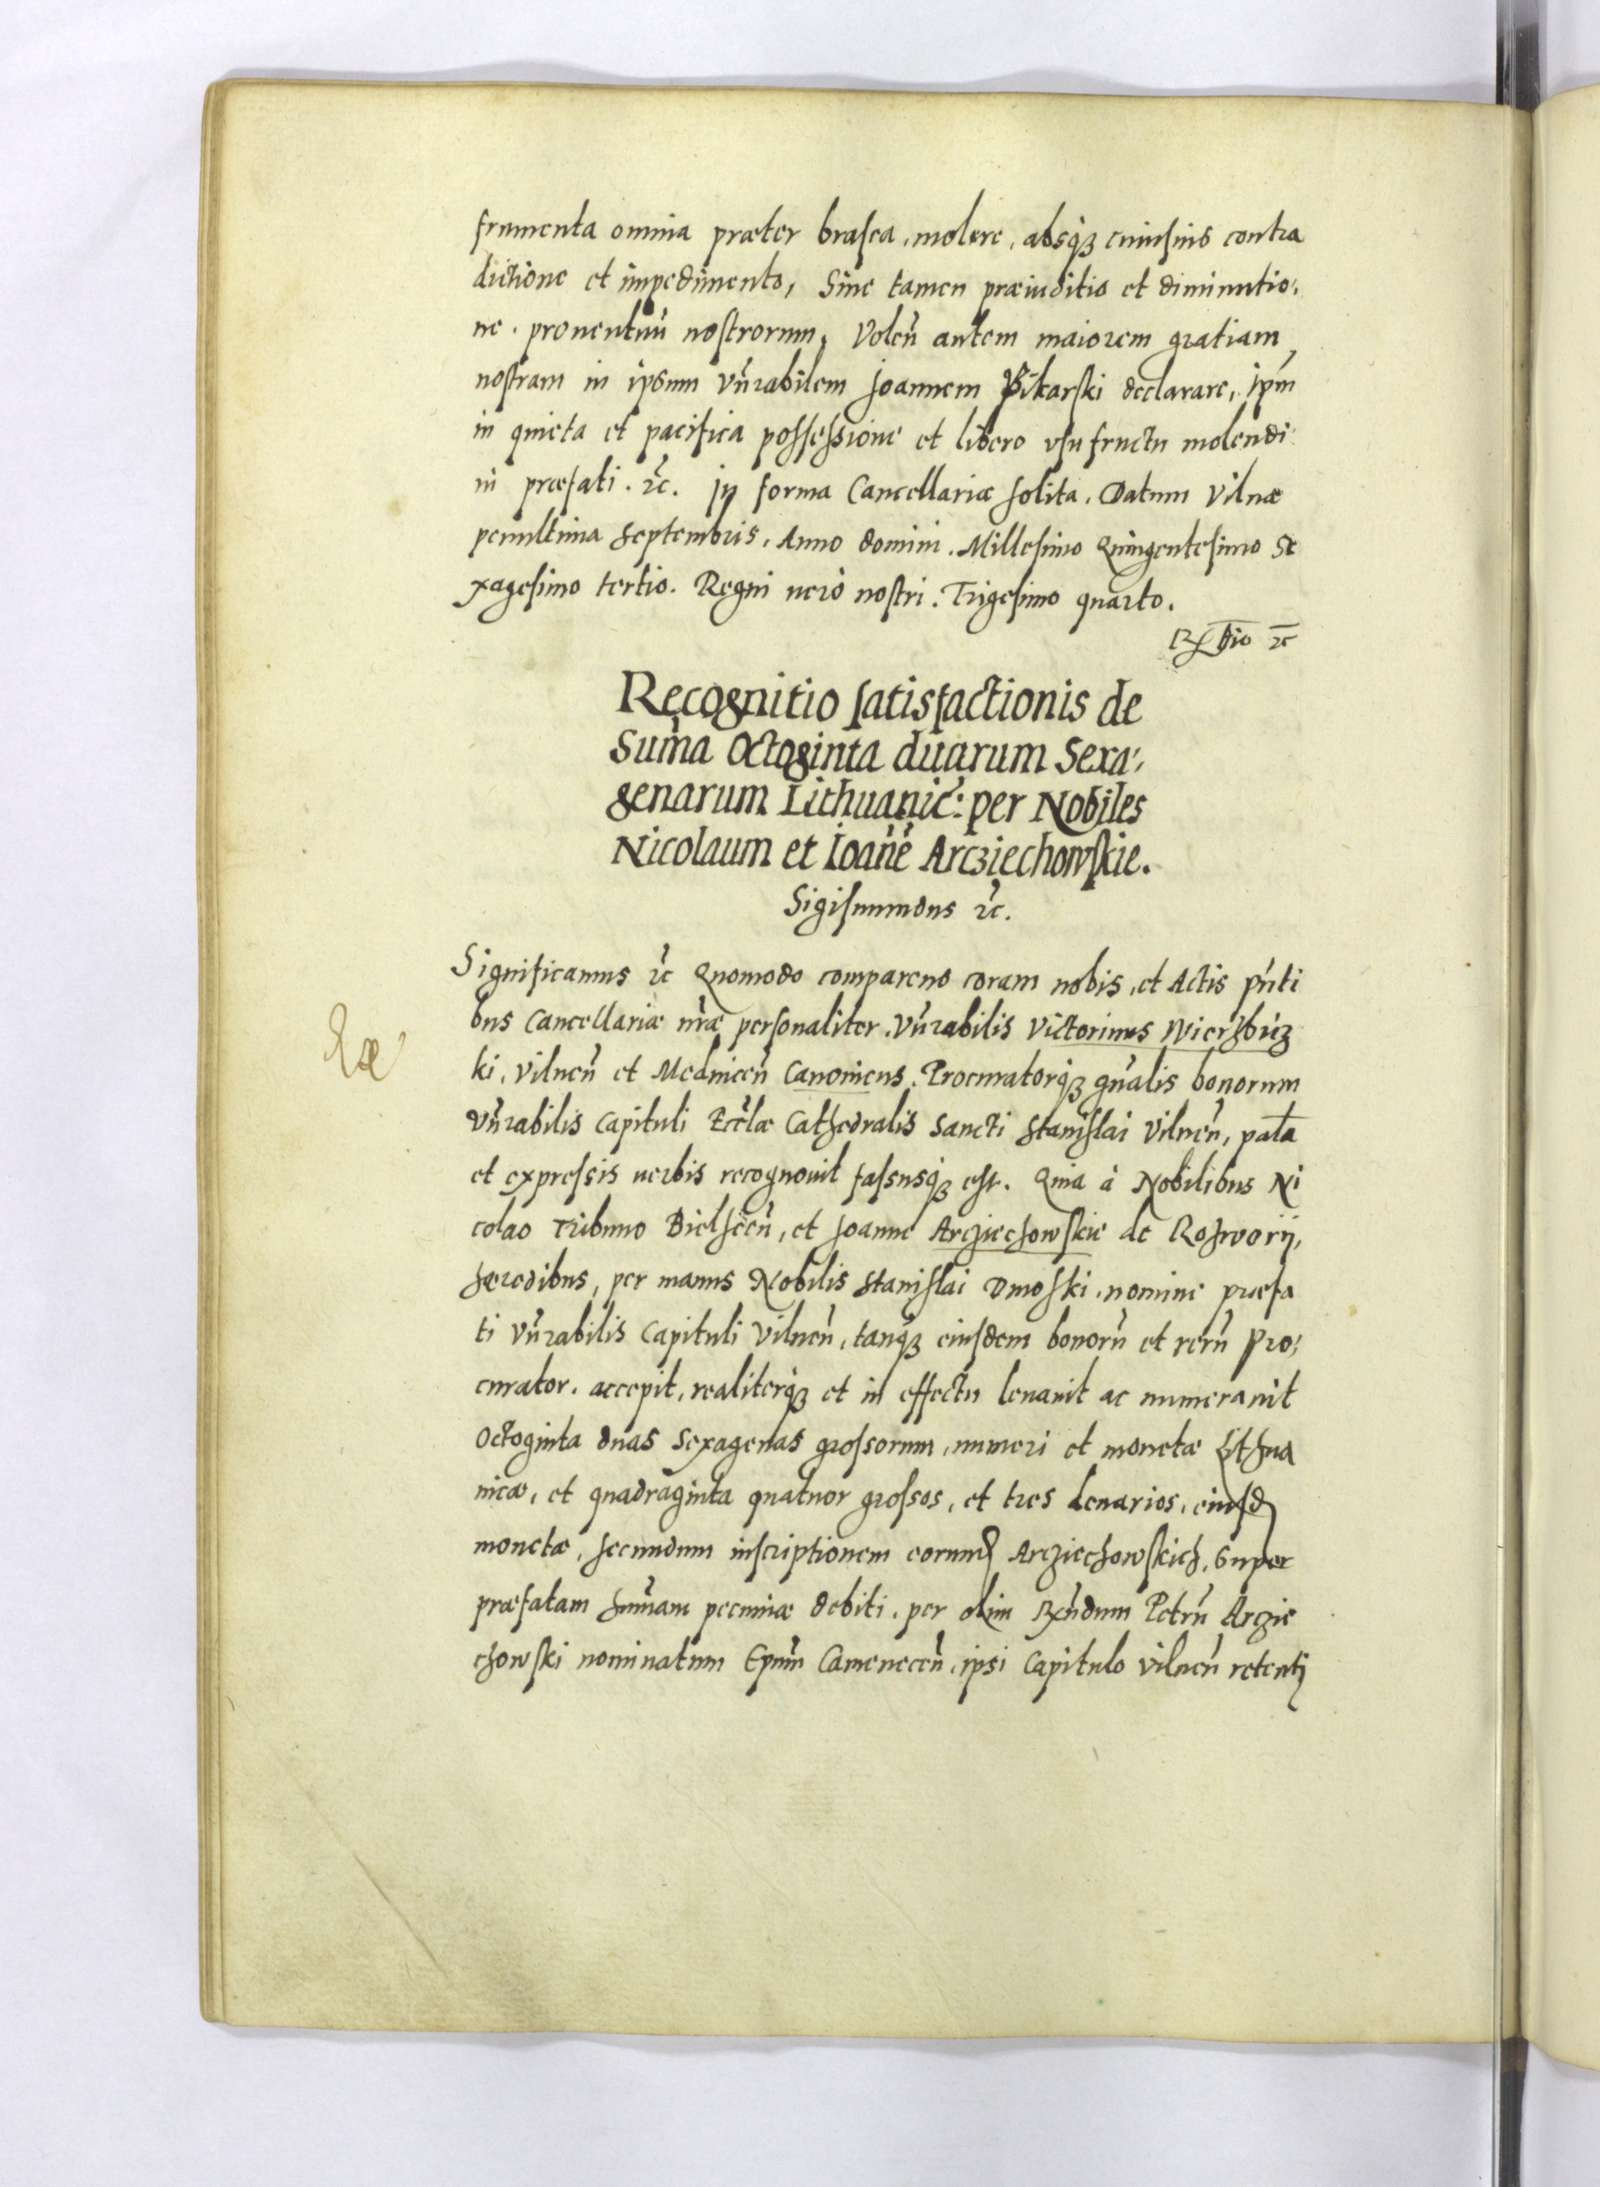 frumenta omnia præter brasea, molere, absq̃ꝫ cuiusuis contra
dictione et impedimento, Sine tamen præiuditio et diminutio,
ne, prouentuũ nostrorum, Volen̄ autem maiorem gratiam
nostram in ipsum Vn̄rabilem Joannem Pikarski declarare, ipm̄
in quieta et pacifica possessione et libero vsufructu molendi
ni præfati. ꝛc̄. Jn forma Cancellariæ solita. Datum Vilnæ
penultima Septembris, Anno domini. Millesimo Quingentesimo Se
xagesimo tertio. Regni uerò nostri. Trigesimo quarto.
ꝛc̄
Recognitio satisfactionis de
Sum̄a Octoginta duarum Sexa,
genarum Lithuanic̄: per Nobiles
Nicolaum et Ioan̄ē Arcziechowskie.
Sigismundus ꝛc̄.
Significamus ꝛc̄ Quomodo comparens coram nobis, et Actis pn̄ti
bus Cancellariæ nr̄æ personaliter. Vn̄rabilis Victorinus Wierzbicz
ki, Vilnen̄ et Mednicen̄ Canonicus, Procuratorq̃ꝫ gn̄alis bonorum
Vn̄rabilis Capituli Eccl̄æ Cathedralis Sancti Stanislai Vilnen̄, palā
et expressis uerbis recognouit fassusq̃ꝫ est. Quia à Nobilibus Ni
colao Tribuno Bielscen̄, et Joanne Arcziechowskie de Rozworij,
hæredibus, per manus Nobilis Stanislai Dmoski, nomine præfa
ti Vn̄rabilis Capituli Vilnen̄, tanq̃ꝫ eiusdem bonorū et rerū Pro,
curator. accepit, realiterq̃ꝫ et in effectu leuauit ac numerauit
Octoginta duas Sexagenas grossorum, numeri et monetæ Lithua
nicæ, et quadraginta quatuor grossos, et tres denarios, eiusd̄
monetæ, secundum inscriptionem eorund̄ Arcziechowskich, Super
præfatam sum̄am pecuniæ debiti, per olim Rn̄dum Petrū Arczie
chowski nominatum Epum̄ Camenecen̄, ipsi Capitulo Vilnen̄ retentj